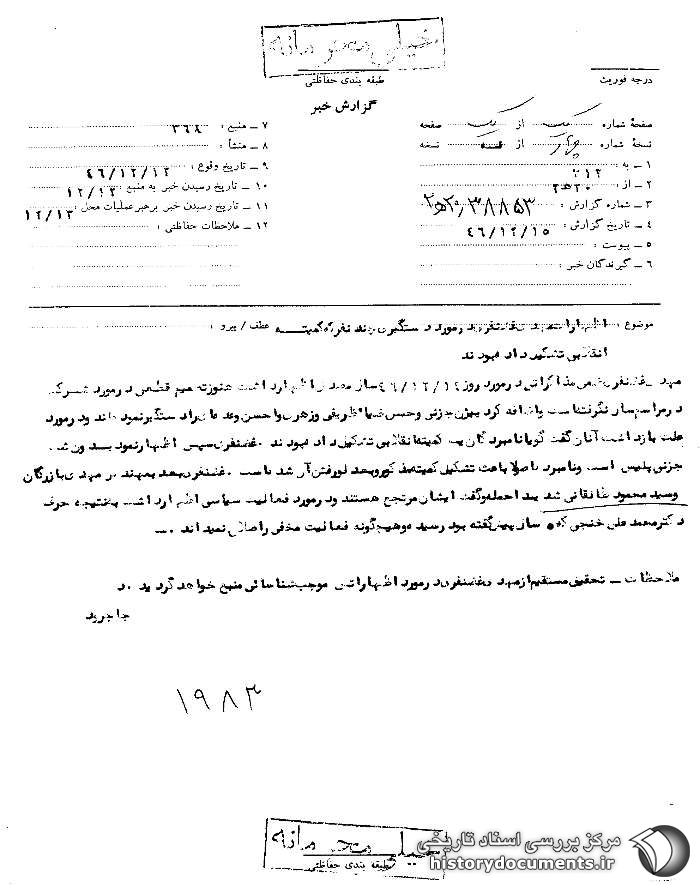 خیلی محرمانه
طبقه بندی حفاظتی
درجه فوریت
گزارش خبر
صفحهٔ شماره یک از یک صفحه
نسخهٔ شماره چهار از نسخه
۱ ـ به : ۳۱۲
۲ ـ از : ۲۰ه۳
۳ ـ شماره گزارش :
۴ ـ تاریخ گزارش : ۴۶/۱۲/۱۵
۵ ـ پیوست :
۶ ـ گیرندگان خبر :
۷ ـ منبع : ۳۶۴
۸ ـ منشأ :
۹ ـ تاریخ وقوع : ۴۶/۱۲/۱۲
۱۰ ـ تاریخ رسیدن خبر به منبع : ۱۲/۱۳
۱۱ ـ تاریخ رسیدن خبر برهبر عملیات محل : ۱۲/۱۳
۱۲ ـ ملاحظات حفاظتی :
موضوع : اظهارات مهدی غضنفری در مورد دستگیری چند نفر که کمیته
عطف / پیرو :
انقلابی تشکیل داده بودند
مهدی غضنفری ضمن مذاکراتی در مورد روز ۴۶/۱۲/۱۴ مصدق اظهار داشت هنوز تصمیم قطعی در مورد شرکت
در مراسم سال نگرفته است و اضافه کرد بیژن جزنی و حسن ضیا ظریفی و زهری و احسن و عده ای را دستگیر نموده اند و در مورد
علت بازداشت آنان گفت گویا نامبردگان یک کمیته انقلابی تشکیل داده بودند . غضنفری سپس اظهار نمود بدون شک
جزنی پلیس است و نامبرده اصلا باعث تشکیل کمیته مذکور و بعد لو رفتن آن شده است . غضنفری بعد به مهندس مهدی بازرگان
و سید محمود طالقانی شدیدا حمله و گفت ایشان مرتجع هستند و در مورد فعالیت سیاسی اظهار داشت به نتیجه حرف
دکتر محمد علی خنجی که ۵ سال پیش گفته بود رسیده و هیچگونه فعالیت مخفی را صلاح نمیداند .
ملاحظات ـ تحقیق مستقیم از مهدی غضنفری در مورد اظهاراتش موجب شناسائی منبع خواهد گردید .
جاجرید
۱۹۸۳
خیلی محرمانه
طبقه بندی حفاظتی
مرکز بررسی اسناد تاریخی
historydocuments.ir